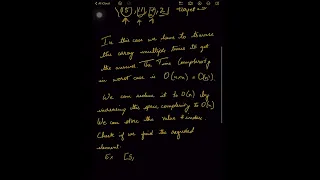 In this case we have to traverse
this array multiple times to get
the answer. The Time Complexity
in worst case is O(n×n) = O(n²).
We can reduce it to O(n) by
increasing the space complexity to O(n)
We can store the value & index.
Check if we find the required
element.
Ex [5,